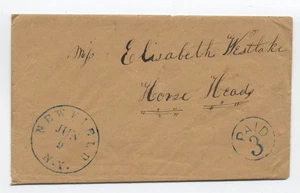 Miss Elisabeth Westlake
Horse Heads
NEWFIELD
JUN
9
N.Y.
PAID
3